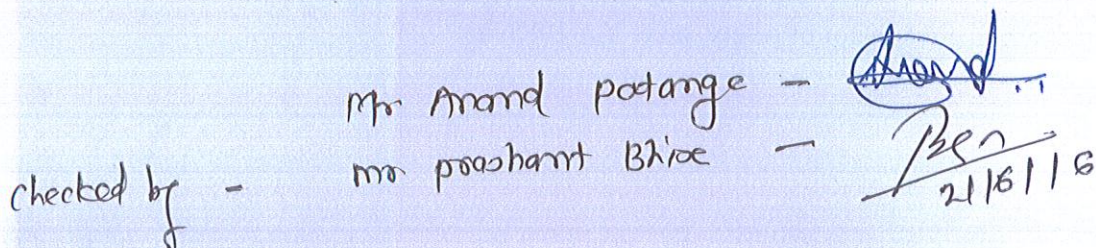 Mr Anand patange - Anand..
checked by - mr prashant Bhise -
21/6/16